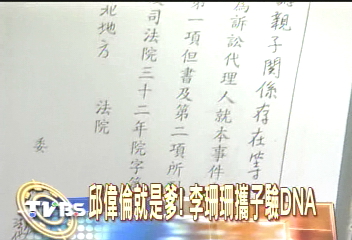 認親子關係存在等
為訴訟代理人就本事件
第一項但書及第二項所
司法院三十二年院字第
北地方 法院
委
TVBS
邱偉倫就是爹!李珊珊攜子驗DNA